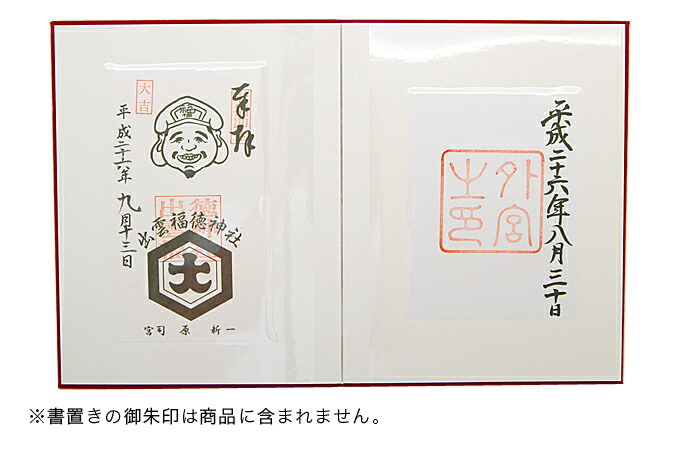 奉拝
大吉
福
出雲福徳神社
大
宮司 原 新一
平成二十六年 九月十三日
平成二十六年八月三十日
外宮之印
※書置きの御朱印は商品に含まれません。